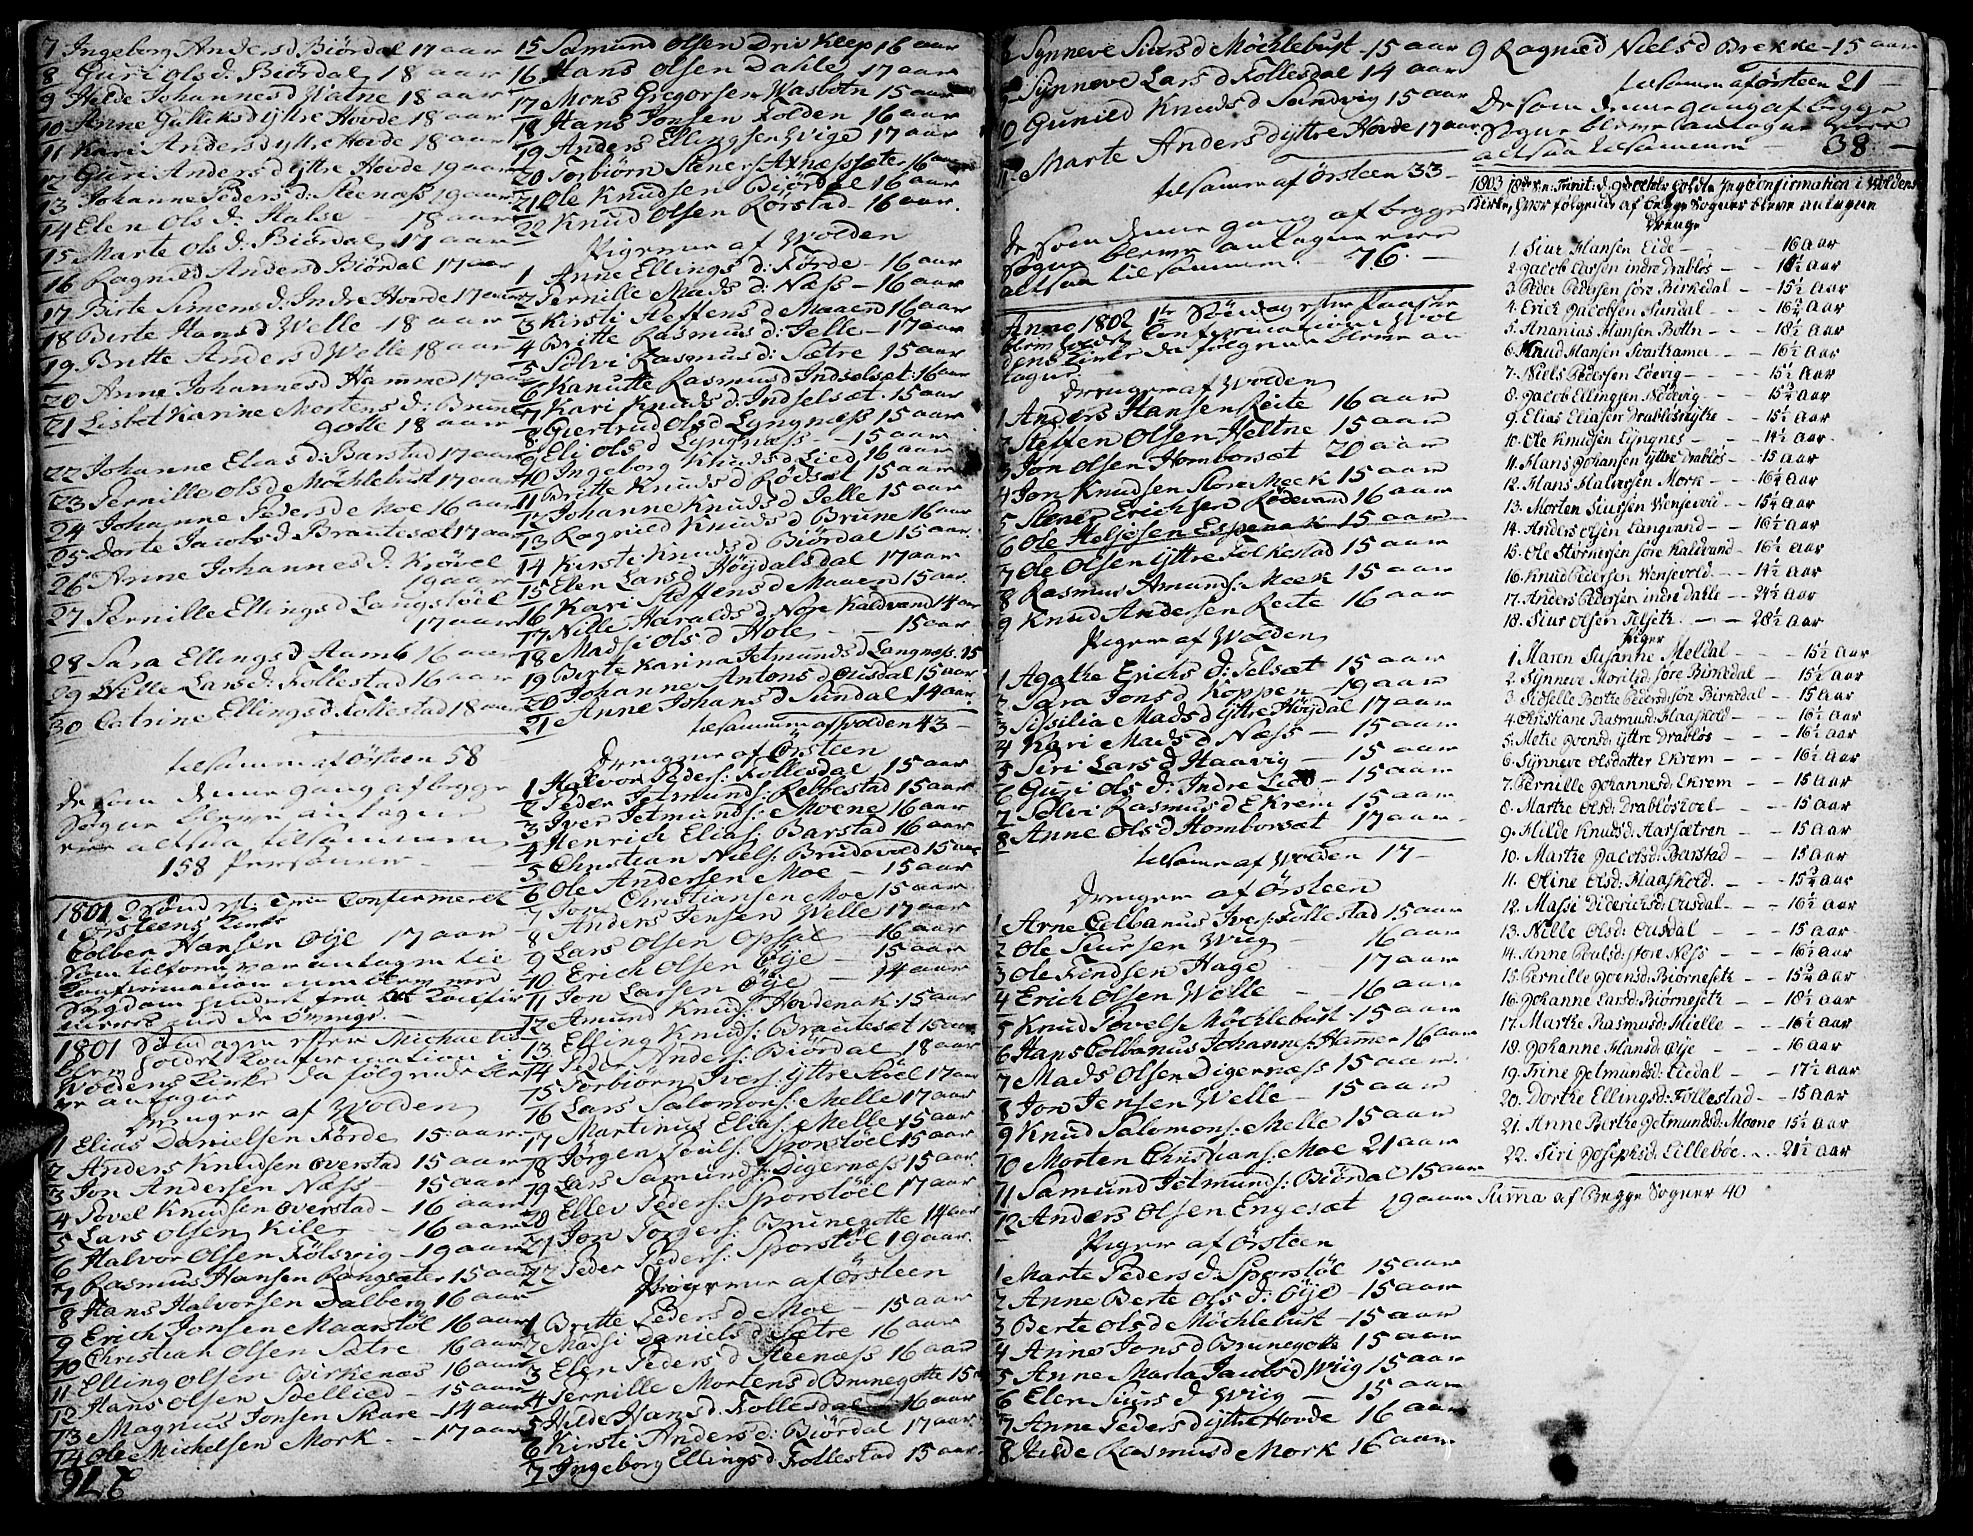 7 Ingeborg Anders d Biördal 17 aar
8 Guri ols d. Biördal 18 aar
9 Helde Johannes d Vatne 18 aar
10 Anne Gulleks d ÿttre Hovde 18 aar
11 Kari Anders d ÿttre Hovde 18 aar
12 Guri Anders d ÿttre Hovde 19 aar
13 Johanne Peders d. Steenæss 19 aar
14 Elen Ols d. Halse 18 aar
15 Marte Ols d. Biördal 17 aar
16 Ragnild Anders d Biördal 17 aar
17 Birte Simens d: Indre Hovde 17 aar
18 Berte Hans d Welle 18 aar
19 Britte Anders d Welle 18 aar
20 Anne Johannes d Hammed 17 aar
21 Lisbet Karine Mortens d: Brune
gotte 18 aar
22 Johanne Elias d: Barstad 17 aar
23 Pernille Ols d Möchlebust 17 aar
24 Johanne Peders d Moe 16 aar
25 Dorte Jacobs d Brautesæt 17 aar
26 Anne Johannes d. Krövel
19 aar
27 Pernille Ellings d Langstöel
17 aar
28 Sara Ellings d Aamb 16 aar
29 Nille Lars d: Follestad 16 aar
30 Catrine Ellings d Follestad 18 aar
tilsamm af Örsteen 58
De som denne gang af begge
Sogne bleve antagne
ere altsaa tilsammen
158 Personer
1801 2 Sönd
i Örsteens Kirke
Colben Hansen Öÿe 17 aar
1801 Söndagen efter Michaelis
blev holdet Confirmation i
Woldens Kirke da fölgende blev
ve antagne
Drenger af Wolden
1 Elias Danielsen Förde 15 aar
2 Anders Knudsen Overstad 15 aar
3 Jon Andersen Næss - 15 aar
4 Povel Knudsen Overstad - 16 aar
5 Lars Olsen Kile - 16 aar
6 Halvor Olsen Fölsvig - 19 aar
7 Rasmus Hansen Rangsæter 15 aar
8 Hans Halvorsen Dalberg 16 aar
9 Erich Jonsen Maarstöl 16 aar
10 Christian Olsen Sætre 16 aar
11 Elling Olsen Birkenæs 16 aar
12 Hans Olsen Sdellied - 15 aar
13 Magnus Jonsen Skare - 14 aar
14 Ole Michelsen Mork - 17 aar
15 Samund Olsen Driv Kleep 16 aar
16 Hans Olsen Dahle 17 aar
17 Mons Gregorsen Wasbotn 15 aar
18 Hans Jonsen Folden 16 aar
19 Anders Ellingsen Vige 17 aar
20 Torbiörn Steners Axnæssæter 16 aar
21 Ole Knudsen Biördal 16 aar
22 Knud Olsen Rörstad 16 aar.
Pigerne af Wolden
1 Anne Ellings d: Förde - 16 aar
2 Pernille Mads d: Næss - 16 aar
3 Kirsti Steffens d Maaen 16 aar
4 Britte Rasmus d: Jelle - 17 aar
5 Sölvi Rasmus d: Sætre 15 aar
6 Kanutte Rasmus d Indselsæt 16 aar
7 Kari Knuds d: Indselsæt 15 aar
8 Giertrud Ols d Lyngnæss 15 aar
9 Eli ols d Lyngnæss - 15 aar
10 Ingeborg Knuds d Lied 16 aar
11 Britte Knuds d Rödsæt 15 aar
12 Johanne Knuds d Jelle 15 aar
13 Ragnild Knuds d Brune 16 aar
14 Kirsti Knuds d Biördal 15 aar.
15 Elen Lars d Höÿdalsdal 17 aar
16 Kari Steffens d Maaen 15 aar.
17 Nille Haralds d Nore Kaldvand 14 aar
18 Madsi ols d Hole - 15 aar
19 Berte Karina Jetmunds d Langnæss. 15
20 Johanne Antons d Ousdal 15 aar
21 Anne Johans d Sundal 14 aar
tilsamm af Volden 43 -
Drenger af Örsteen
1 Halvor Peders: Follesdal 15 aar
2 Peder Jetmunds: Rebbestad 15 aar
3 Iver Jetmunds: Moene 16 aar
4 Henrich Elias: Barstad 16 aar
5 Christian Niels: Brudevold 15 aar
6 Ole Andersen Moe - 15 aar
7 Jon Christiansen Moe 15 aar
8 Anders Jensen Welle 17 aar
9 Lars Olsen Opsal - 16 aar
10 Erich Olsen Öÿe - 15 aar
11 Jon Larsen Öÿe - 14 aar
12 Amund Knuds: Hovdenak 15 aar
13 Elling Knuds: Brautesæt 15 aar
14 Peder Anders: Biördal 18 aar
15 Torbiörn Ivers: ÿttre Stöel 17 aar
16 Lars Salomons: Melle 17 aar
17 Martinus Elias: Melle 15 aar
18 Jörgen Pouls: Sporstöel 15 aar
19 Lars Samunds: Digernæss 15 aar
20 Ellev Peders: Sporstöel 17 aar
21 Jon Jörgers: Brunegotte 14 aar
22 Peder Peders: Sporstöl 19 aar.
Pigerne af Örsteen
1 Britte Peders d Moe - 15 aar
2 Madsi Daniels d Sætre 16 aar
3 Elen Peders d Steenæss 16 aar
4 Pernille Mortens d Brunegotte 15
5 Hilde Hans d. Follesdal 16 aar
6 Kirsti Anders d: Biördal 17 aar
7 Ingeborg Ellings d Follestad 15 aar
8 Synneve Siurs d Möchlebust - 15 aar
9 Synneve Lars d Follesdal 14 aar
10 Gunild Knuds d Sandvig 15 aar
11 Marte Anders d ÿttre Hovde 17 aar
tilsamm af Örsteen 33 -
De som denne gang af begge
Sogne bleve antagne ere
altsaa tilsammen - 76. -
Anno 1802 1te Söndag efter Paaske
blev holdt Confirmation i Wol
dens Kirke da fölgende bleve an
tagne
Drenger af Wolden
1 Anders Hansen Reite 16 aar
2 Steffen Olsen Heltne 15 aar
3 Jon Olsen Homborsæt 20 aar
4 Jon Knudsen Store Meek 15 aar
5 Stener Erichsen Rödevand 16 aar
6 Ole Heljesen Espenak 15 aar
7 Ole Olsen ÿttre Folkestad 15 aar
8 Rasmus Amunds: Meek 15 aar
9 Knud Andersen Reite 16 aar
Piger af Wolden
1 Agathe Erichs d: Felsæt 15 aar
2 Sara Jons d Koppen - 19 aar
3 Sissilia Mads d ÿttre Höÿdal 17 aar
4 Kari Mads d Næss - 15 aar
5 Siri Lars d Haavig - 15 aar
6 Guri ols d: Indre Lied - 15 aar
7 Sölvi Rasmus d Ekrem 15 aar
8 Anne Ols d Homborsæt 17 aar
tilsamm af Wolden 17 -
Drenger af Örsteen
1 Arne Colbanus Ivers: Follestad 15 aar
2 Ole Siursen Wiig - 16 aar
3 Ole Findsen Hage - 17 aar
4 Erich Olsen Welle - 16 aar
5 Knud Povels Möchlebust - 15 aar
6 Hans Colbanus Johannes: Hamen 16 aar
7 Mads Olsen Digernæss 15 aar
8 Jon Jensen Velle - 15 aar
9 Knud Salomons: Melle 15 aar
10 Morten Christians: Moe 21 aar
11 Samund Jetmunds: Biördal 15 aar
12 Anders Olsen Engesæt 19 aar
Piger af Örsteen
1 Marte Peders d. Sporstöl 15 aar
2 Anne Berte Ols d: Öÿe - 15 aar
3 Berte Ols d Möchlebust - 15 aar
4 Anne Jons d Brunegotte 15 aar
5 Anne Marta Jacobs d Wiig 15 aar
6 Elen Siurs d. Wiig - 15 aar
7 Anne Peders d ÿttre Hovde 16 aar
8 Hilde Rasmus d Mork 16 aar
9 Ragnild Niels d Brekke - 15 aar
tilsamm af Örsteen 21 -
De som denne gang af begge
Sogne bleve antagne ere
altsaa tilsammen - 38 -
1803 18de Sön: Trinit: d. 9 October holdte Jeg Confirmation i Woldens
Kirke, hvor fölgende af begge Sogner bleve antagne
Drenge
1. Siur Hansen Eide - - 16 Aar
2. Jacob Larsen indre Drablös - - 18½ Aar
3. Peder Pedersen söre Birkedal - 15½ Aar
4. Erich Jacobsen Sundal - - 16¾ Aar
5. Ananias Hansen Botn - - 18½ Aar
6. Knud Hansen Svartkamer - - 16½ Aar
7. Niels Pedersen Löevig - - 15½ Aar
8. Jacob Ellingsen Nödevig - - 15¾ Aar
9. Elias Eliasen Drablösyttre - 15½ Aar
10. Ole Knudsen Lyngnes - - 14½ Aar
11. Hans Johansen yttre Drablös - 15 Aar
12. Hans Halvorsen Mork - - 16¼ Aar
13. Morten Siursen Wensevold - 15¼ Aar
14. Anders Olsen Langvand - - 16½ Aar
15. Ole Störnersen söre Kaldvand - 16½ Aar
16. Knud Pedersen Wensevold - - 14½ Aar
17. Anders Pedersen indre Dahle - 24½ Aar
18. Siur Olsen Felsetr - - 28½ Aar
Piger
1 Maren Susanne Meldal - - 15½ Aar
2. Synneve Moritzd: söre Birkedal - 15½ Aar
3. Sidselle Berthe Pedersd söre Birkedal - 15 Aar
4. Christiane Rasmusd: Haaskold - 16½ Aar
5. Methe Jvensd: yttre Drablös - 16½ Aar
6. Synneve Olsdatter Ekrem - - 16½ Aar
7. Pernille Johannesd: Ekrem - - 15 Aar
8. Marthe Olsd: Drablöstöel - - 15 Aar
9. Hilde Knudsd: Aarsætren - - 15 Aar
10. Marthe Jacobsd: Barstad - - 15 Aar
11. Oline Olsd: Haaskold. - - 15¾ Aar
12. Massi Didericksd: Ousdal - - 16½ Aar
13. Nille Olsd: Ousdal - - 15 Aar
14. Anne Poulsd: store Næss - - 16½ Aar
15. Pernille Jvensd: Biörnesetr - - 15¾ Aar
16. Johanne Larsd: Biörnesetr - - 18½ Aar
17. Marthe Rasmusd: Mielle - - 16½ Aar
18. Johanne Hansd: Öÿe - - 16 Aar
19. Trine Jetmundsd: Liedal - - 17½ Aar
20. Dorthe Ellingsd: Follestad - - 15 Aar
21. Anne Berthe Jetmundsd: Moene 15½ Aar
22. Siri Josephsd: Lillebøe . . 21½ Aar
Suma af Begge Sogner 40